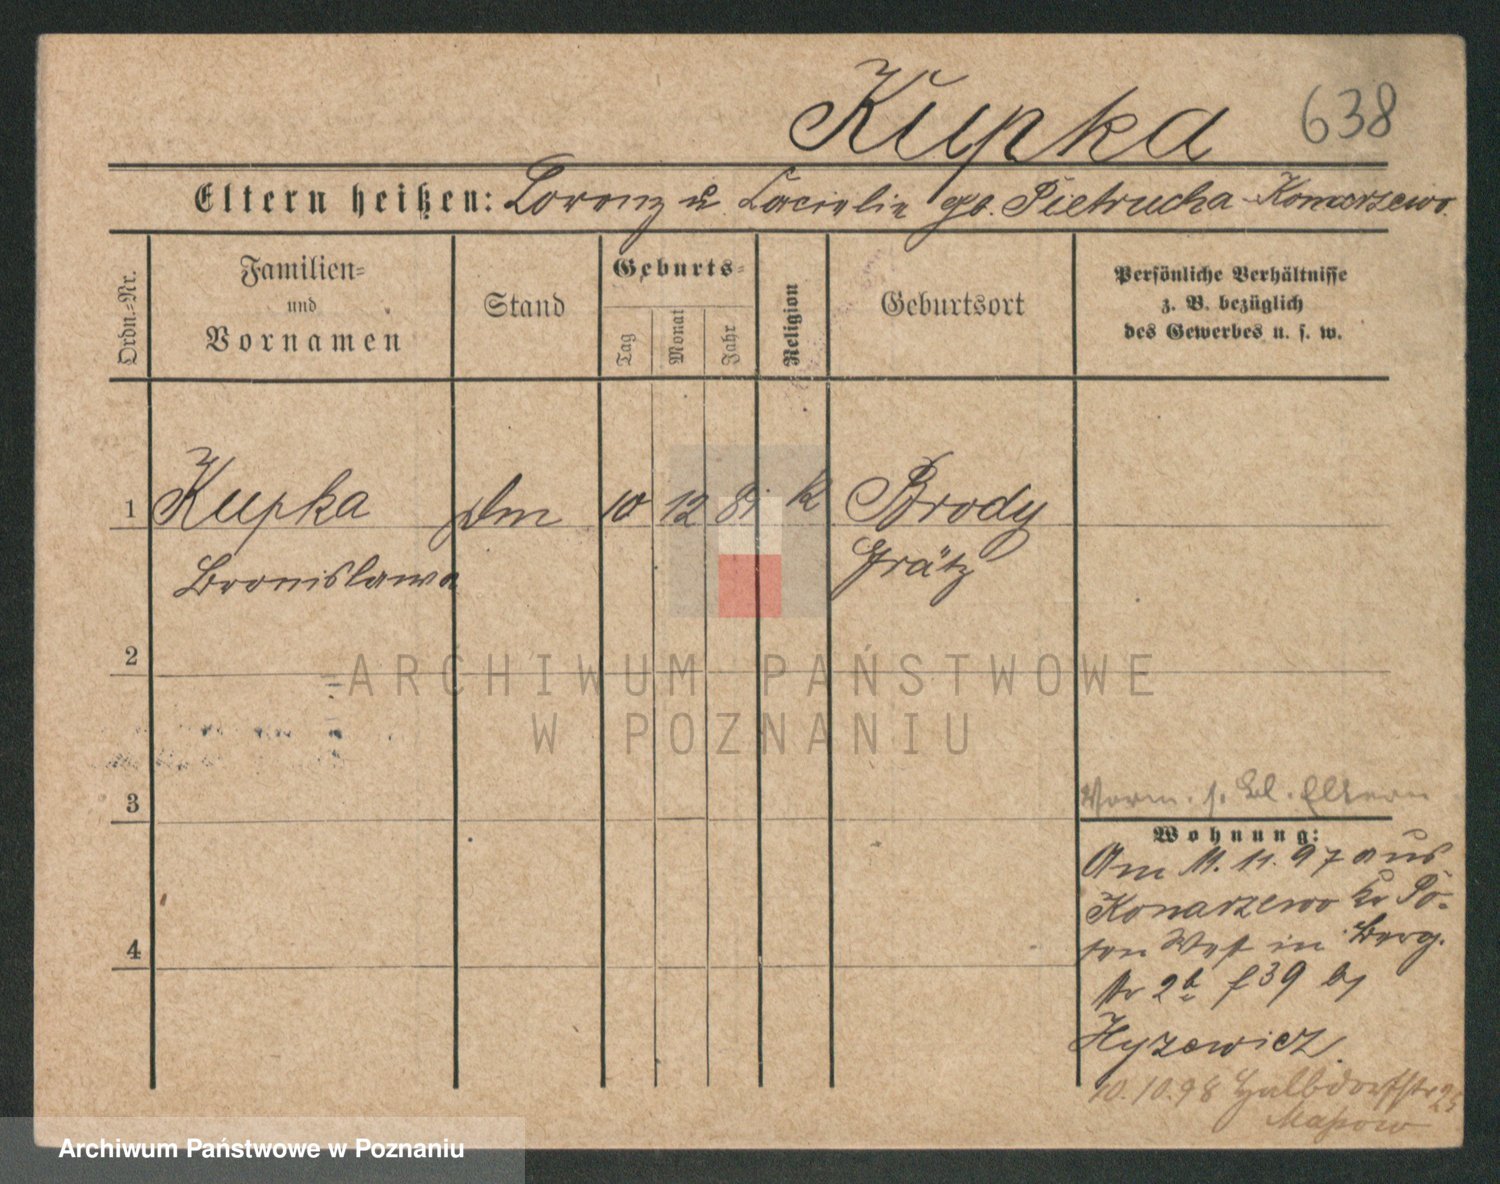 Kupka 638
Eltern heißen: Lorenz u Cacielie gb. Pietrucha Komorzewo
Ordn.=Nr.
Familien=
und
Vornamen
Stand
Geburts=
Tag
Monat
Jahr
Religion
Geburtsort
Persönliche Verhältnisse
z. B. bezüglich
des Gewerbes u. s. w.
1 Kupka Dm 10 12 81 k Brody
Bronislawa Grätz
2
ARCHIWUM PAŃSTWOWE
W POZNANIU
3
Eltern
Wohnung:
Am 11. 11. 97 aus
Konarzewo Kr Po-
sen West in Berg-
str 2b f 39 by
Hyzewicz.
4
10.10.98 Halbdorfstr 25
Archiwum Państwowe w Poznaniu